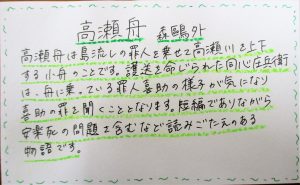 高瀬舟 森鷗外
高瀬舟は島流しの罪人を乗せて高瀬川を上下
する小舟のことです。護送を命じられた同心庄兵衛
は、舟に乗っている罪人喜助の様子が気になり
喜助の罪を聞くこととなります。短編でありながら
安楽死の問題を含むなど読みごたえのある
物語です。